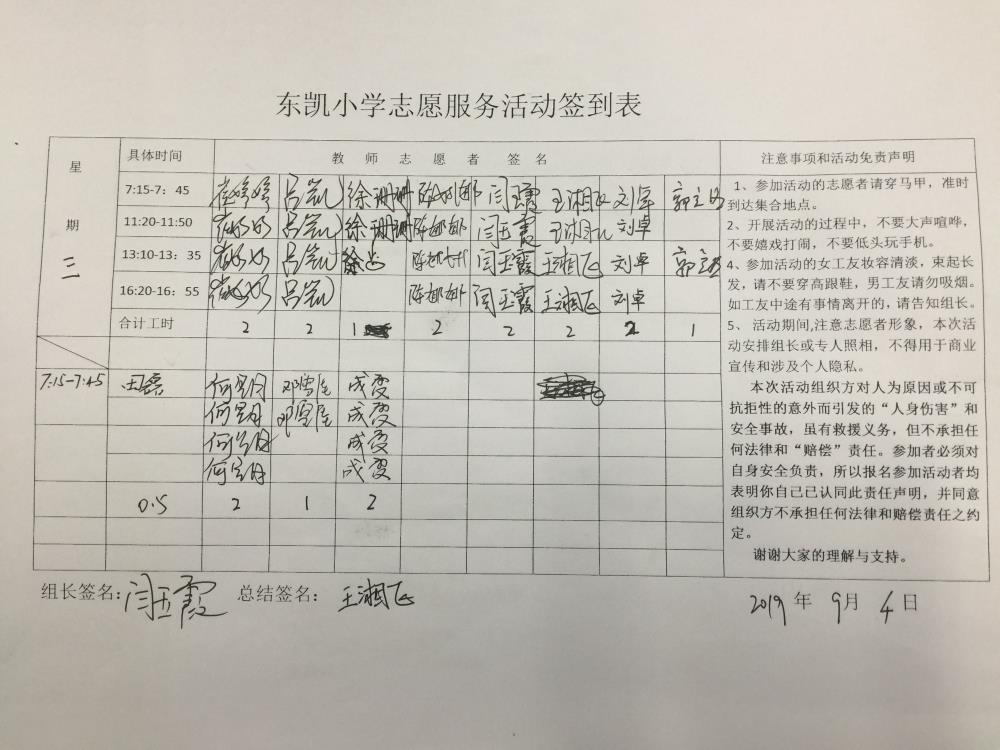 东凯小学志愿服务活动签到表
星期三
具体时间 教师志愿者签名 注意事项和活动免责声明
7:15-7：45 吕凯 徐珊珊 闫玉霞 王湘飞 刘卓
11:20-11:50 吕凯 徐珊珊 陈娜娜 闫玉霞 王湘飞 刘卓
13:10-13：35 吕凯 闫玉霞 王湘飞 刘卓
16:20-16：55 吕凯 陈娜娜 闫玉霞 王湘飞 刘卓
合计工时 2 2 1 2 2 2 2 1
7:15-7:45 田磊 何明月 成变
何明月 成变
何明月 成变
何明月 成变
0.5 2 1 2
1、参加活动的志愿者请穿马甲，准时
到达集合地点。
2、开展活动的过程中，不要大声喧哗，
不要嬉戏打闹，不要低头玩手机。
4、参加活动的女工友妆容清淡，束起长
发，请不要穿高跟鞋，男工友请勿吸烟。
如工友中途有事情离开的，请告知组长。
5、 活动期间,注意志愿者形象，本次活
动安排组长或专人照相，不得用于商业
宣传和涉及个人隐私。
本次活动组织方对人为原因或不可
抗拒性的意外而引发的“人身伤害”和
安全事故，虽有救援义务，但不承担任
何法律和“赔偿”责任。参加者必须对
自身安全负责，所以报名参加活动者均
表明你自己已认同此责任声明，并同意
组织方不承担任何法律和赔偿责任之约
定。
谢谢大家的理解与支持。
组长签名：闫玉霞 总结签名：王湘飞 2019年9月4日